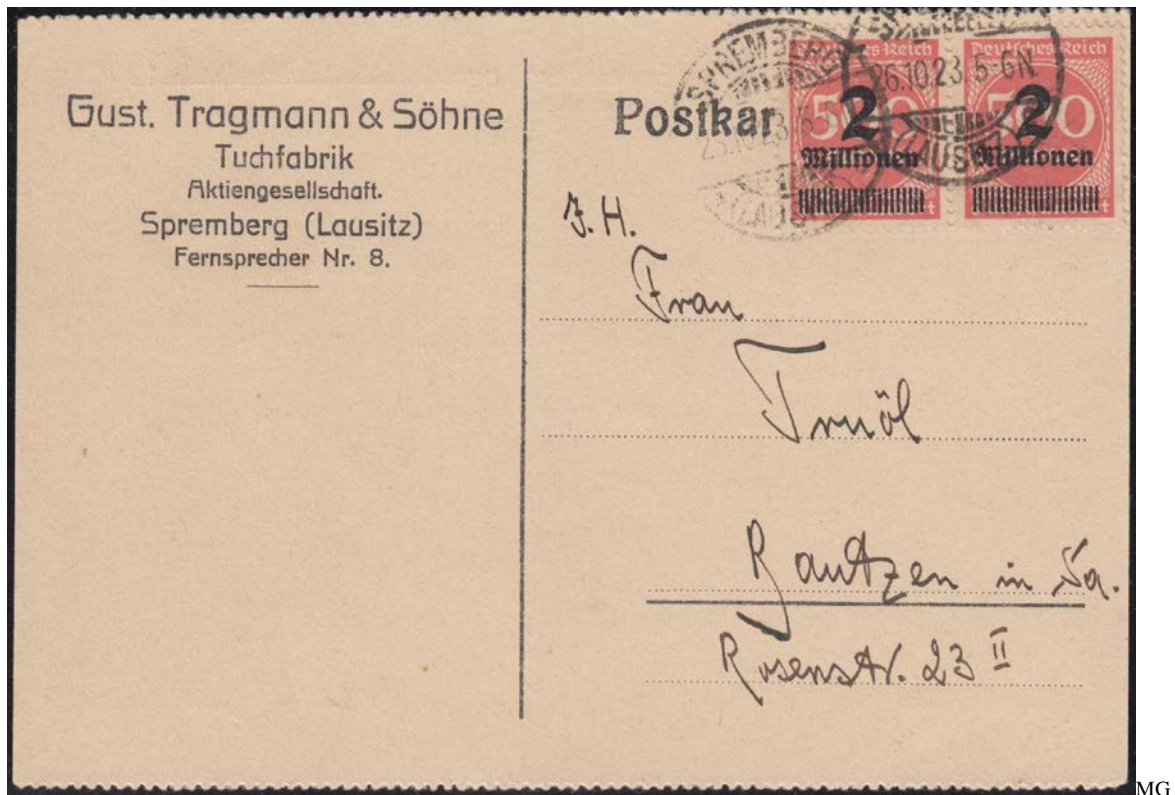 Gust. Tragmann & Söhne
Tuchfabrik
Aktiengesellschaft.
Spremberg (Lausitz)
Fernsprecher Nr. 8.
Postkar
SPREMBERG
25.10.23. 5-6N.
(LAUSITZ)
26.10.23. 5-6N.
(LAUSITZ)
Deutsches Reich
500
2
Millionen
Deutsches Reich
500
2
Millionen
J. H.
Frau
Truöl
Bautzen in Sa.
Rosenstr. 23 II
MG